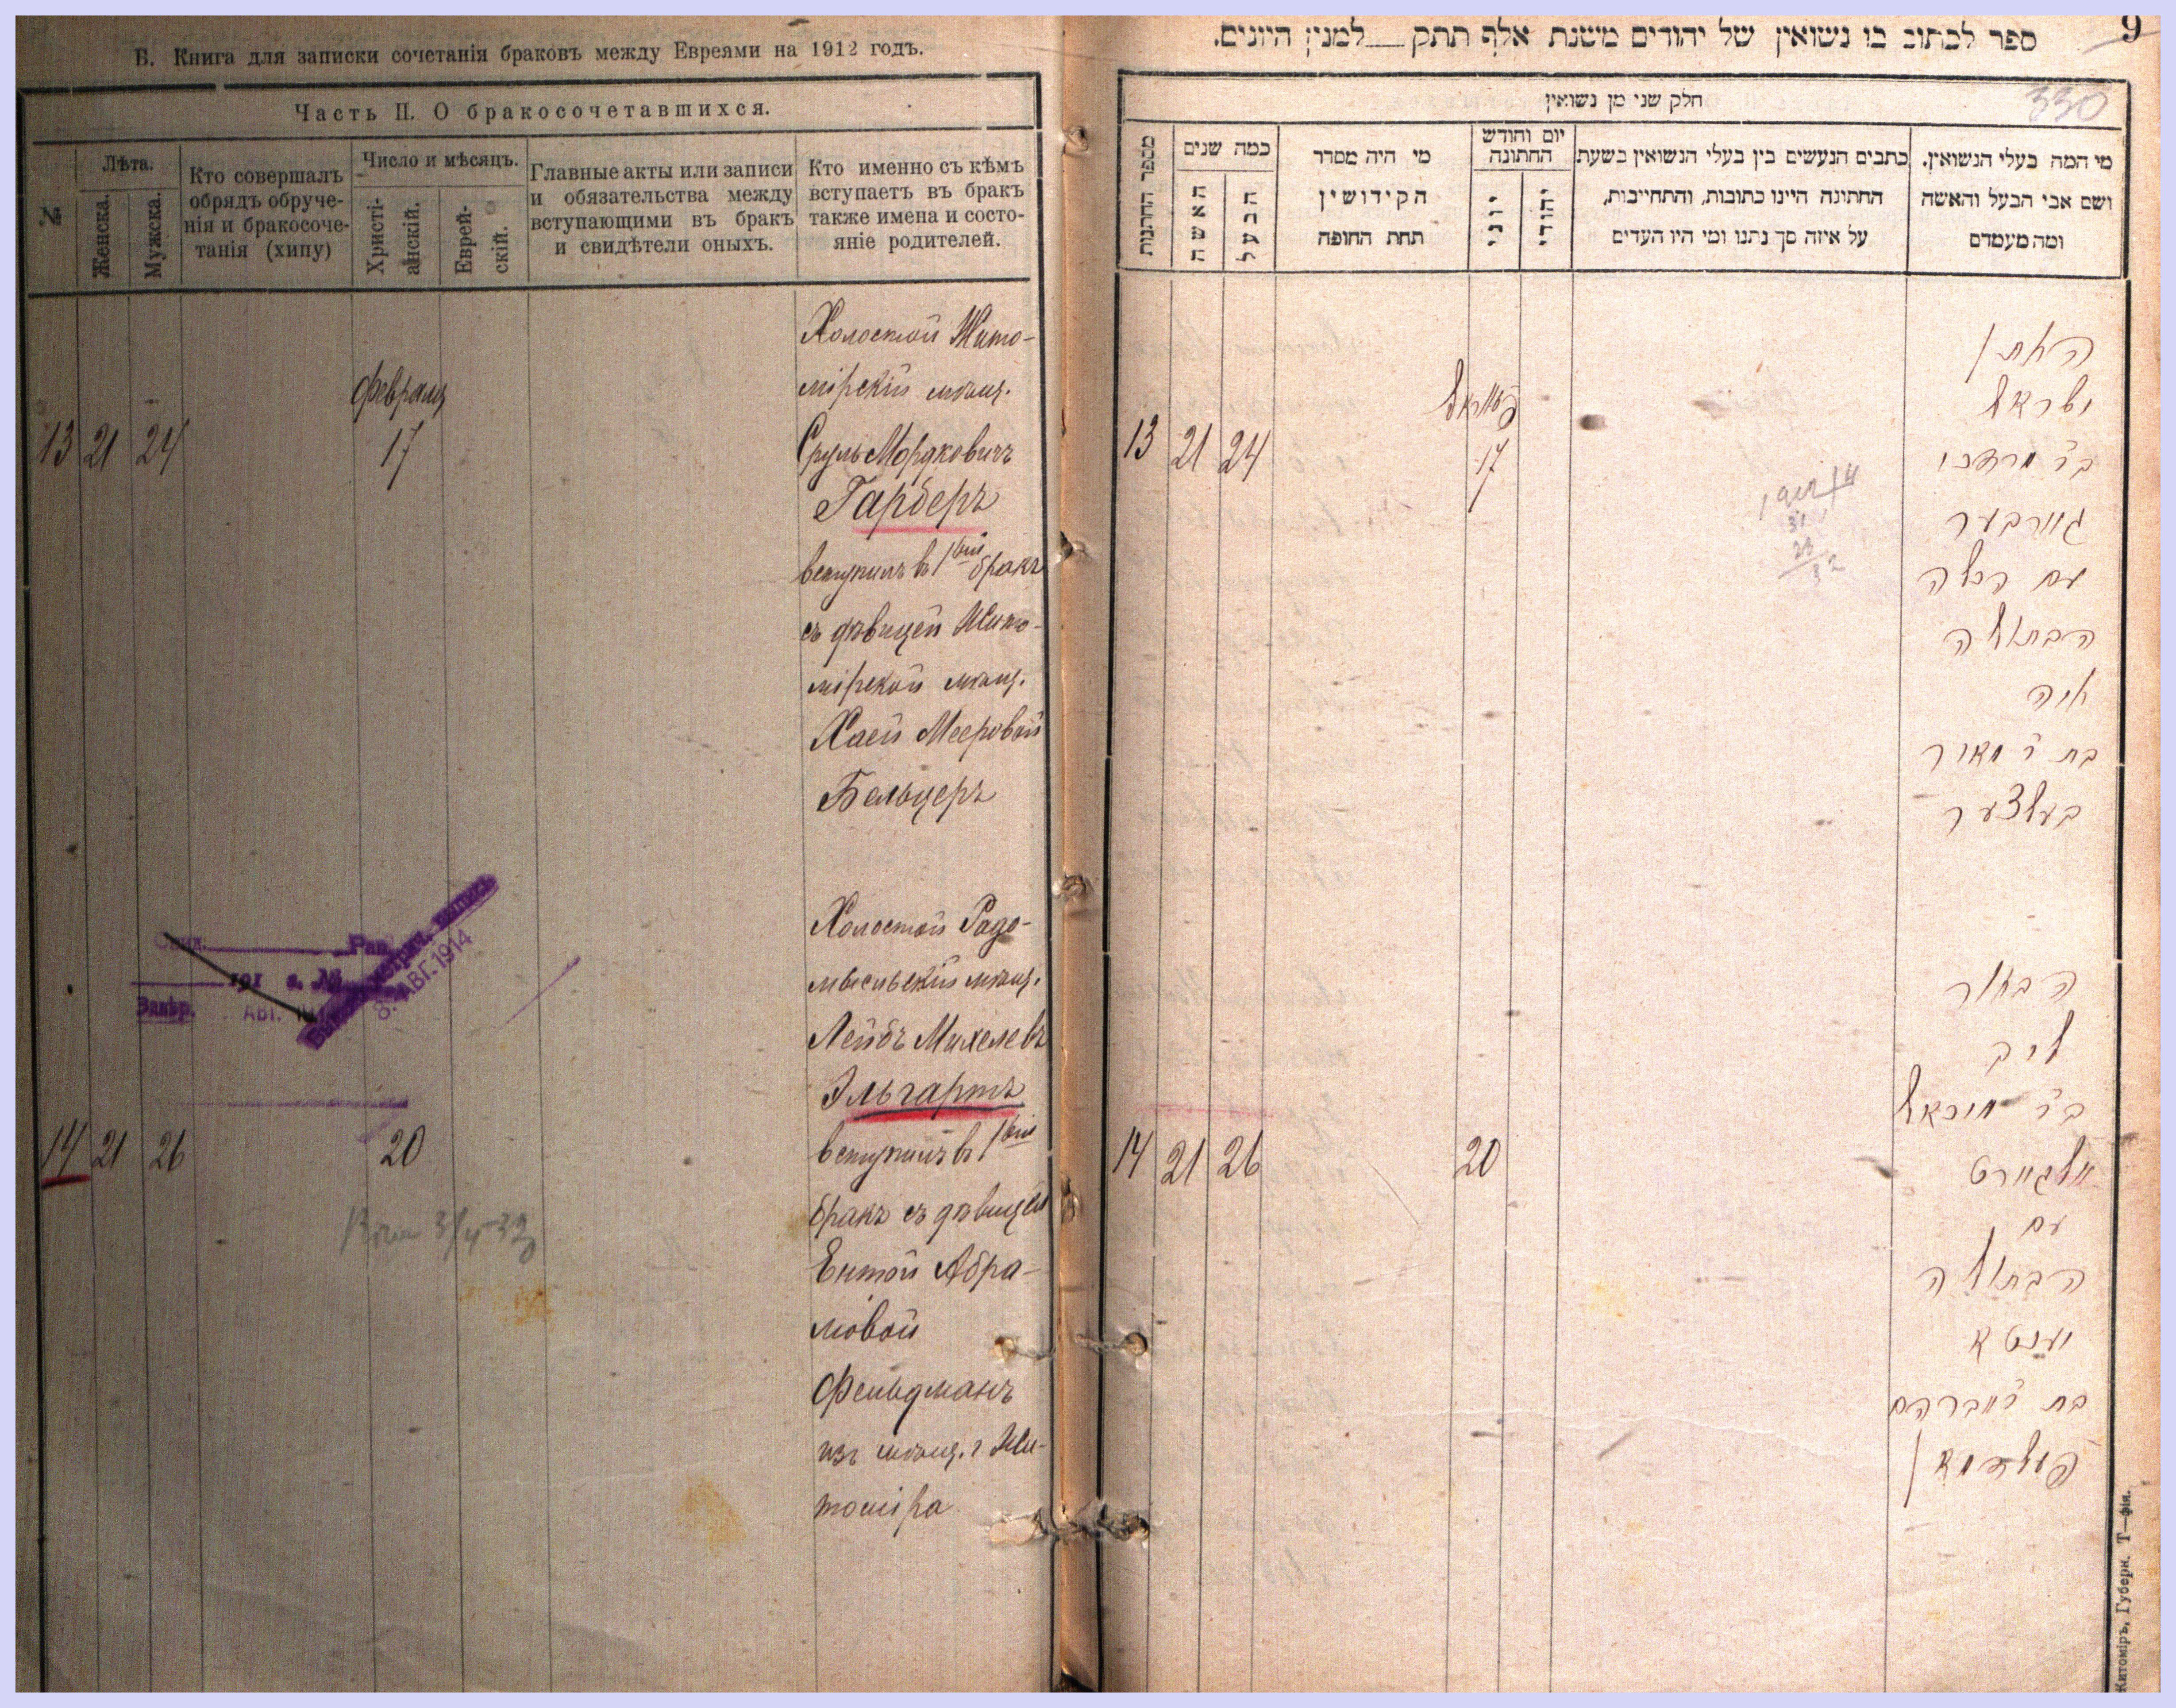 Б. Книга для записки сочетанія браковъ между Евреями на 1912 годъ.
Часть II. О бракосочетавшихся.
№
Лѣта.
Женска.
Мужска.
Кто совершалъ
обрядъ обруче-
нія и бракосоче-
танія (хипу)
Число и мѣсяцъ.
Христі-
анскій.
Еврей-
скій.
Главные акты или записи
и обязательства между
вступающими въ бракъ
и свидѣтели оныхъ.
Кто именно съ кѣмъ
вступаетъ въ бракъ
также имена и состо-
яніе родителей.
Февраля
13 21 24 17
Холостой Жито-
мірскій мѣщ.
Сруль Мордковичъ
Гарберъ
вступилъ въ 1вый бракъ
съ дѣвицей Жито-
мірской мѣщ.
Хаей Мееровой
Бельцеръ
Рав.
191 г. №
Завѣр.
АВГ.
8. АВГ. 1914
14 21 26 20
Холостой Радо-
мысльскій мѣщ.
Лейбъ Михелевъ
Эльгартъ
вступилъ въ 1вый
бракъ съ дѣвицей
Ентой Абра-
мовой
Фельдманъ
изъ мѣщ. г Жи-
томіра
9
ספר לכתוב בו נשואין של יהודים משנת אלף תתק למנין היונים.
330
חלק שני מן נשואין
מספר החתנות
כמה שנים
האשה
הבעל
מי היה מסדר
הקידושין
תחת החופה
יום וחודש
החתונה
יוני
יהודי
כתבים הנעשים בין בעלי הנשואין בשעת
החתונה היינו כתובות, והתחייבות,
על איזה סך נתנו ומי היו העדים
מי המה בעלי הנשואין.
ושם אבי הבעל והאשה
ומה מעמדם
13 21 24 17
ישראל
ב"ר מרדכי
גארבער
עם הבתולה
חיה
בת ר' מאיר
בעלצער
14 21 26 20
הבחור
ליב
ב"ר מיכאל
אלגארט
עם
הבתולה
יענטא
בת ר' אברהם
פעלדמאן
Житоміръ, Губерн. Т—фія.